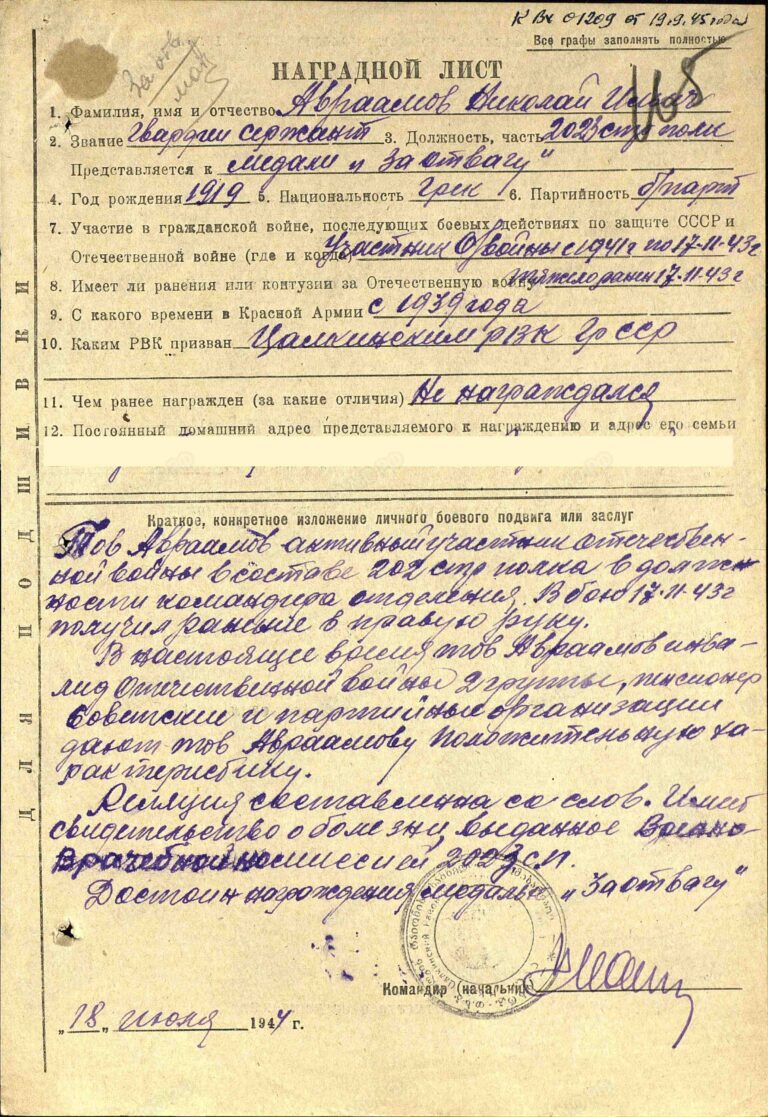 К Вх 01209 от 19.9.45 года
Все графы заполнять полностью
За отв.
мед
165
НАГРАДНОЙ ЛИСТ
1. Фамилия, имя и отчество Авраамов Николай
2. Звание Гвардии сержант 3. Должность, часть 202 стр полк
Представляется к медали „За отвагу"
4. Год рождения 1919 5. Национальность Грек 6. Партийность б/парт
7. Участие в гражданской войне, последующих боевых действиях по защите СССР и
Отечественной войне (где и когда) Участник О/войны с 1941г по 17-11-43г
8. Имеет ли ранения или контузии за Отечественную войну тяжело ранен 17-11-43г
9. С какого времени в Красной Армии с 1939 года
10. Каким РВК призван Цалкинским РВК Гр ССР
11. Чем ранее награжден (за какие отличия) Не награждался
12. Постоянный домашний адрес представляемого к награждению и адрес его семьи
Краткое, конкретное изложение личного боевого подвига или заслуг
Тов Авраамов активный участник отечествен-
ной войны в составе 202 стр полка в долж-
ности командира отделения. В бою 17-11-43г
получил ранение в правую руку.
В настоящее время тов Авраамов инва-
лид Отечественной войны 2 группы, пенсионер
Советские и партийные организации
дают тов Авраамову положительную ха-
рактеристику.
Реляция составленна со слов. Имеет
свидетельство о болезни, выданное Военно
Врачебной комиссией
Достоин награждения медалью „За отвагу"
Командир (начальник)
„18„ июля 1944 г.
ДЛЯ ПОДШИВКИ